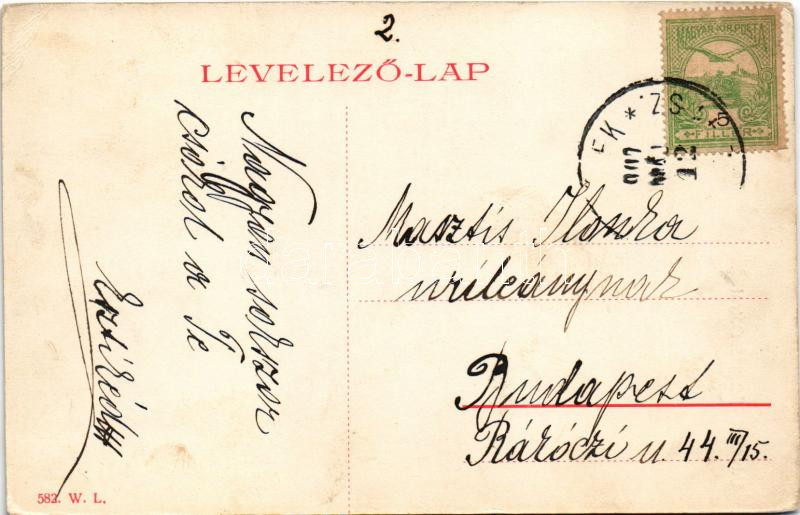 2.
LEVELEZŐ-LAP
MAGYAR KIR. POSTA
5
FILLÉR
907
12
Nagyon sokszor
csókol a Te
Masztis Ilonka
urileánynak
Budapest
Rákóczi u. 44. III/15.
582. W. L.